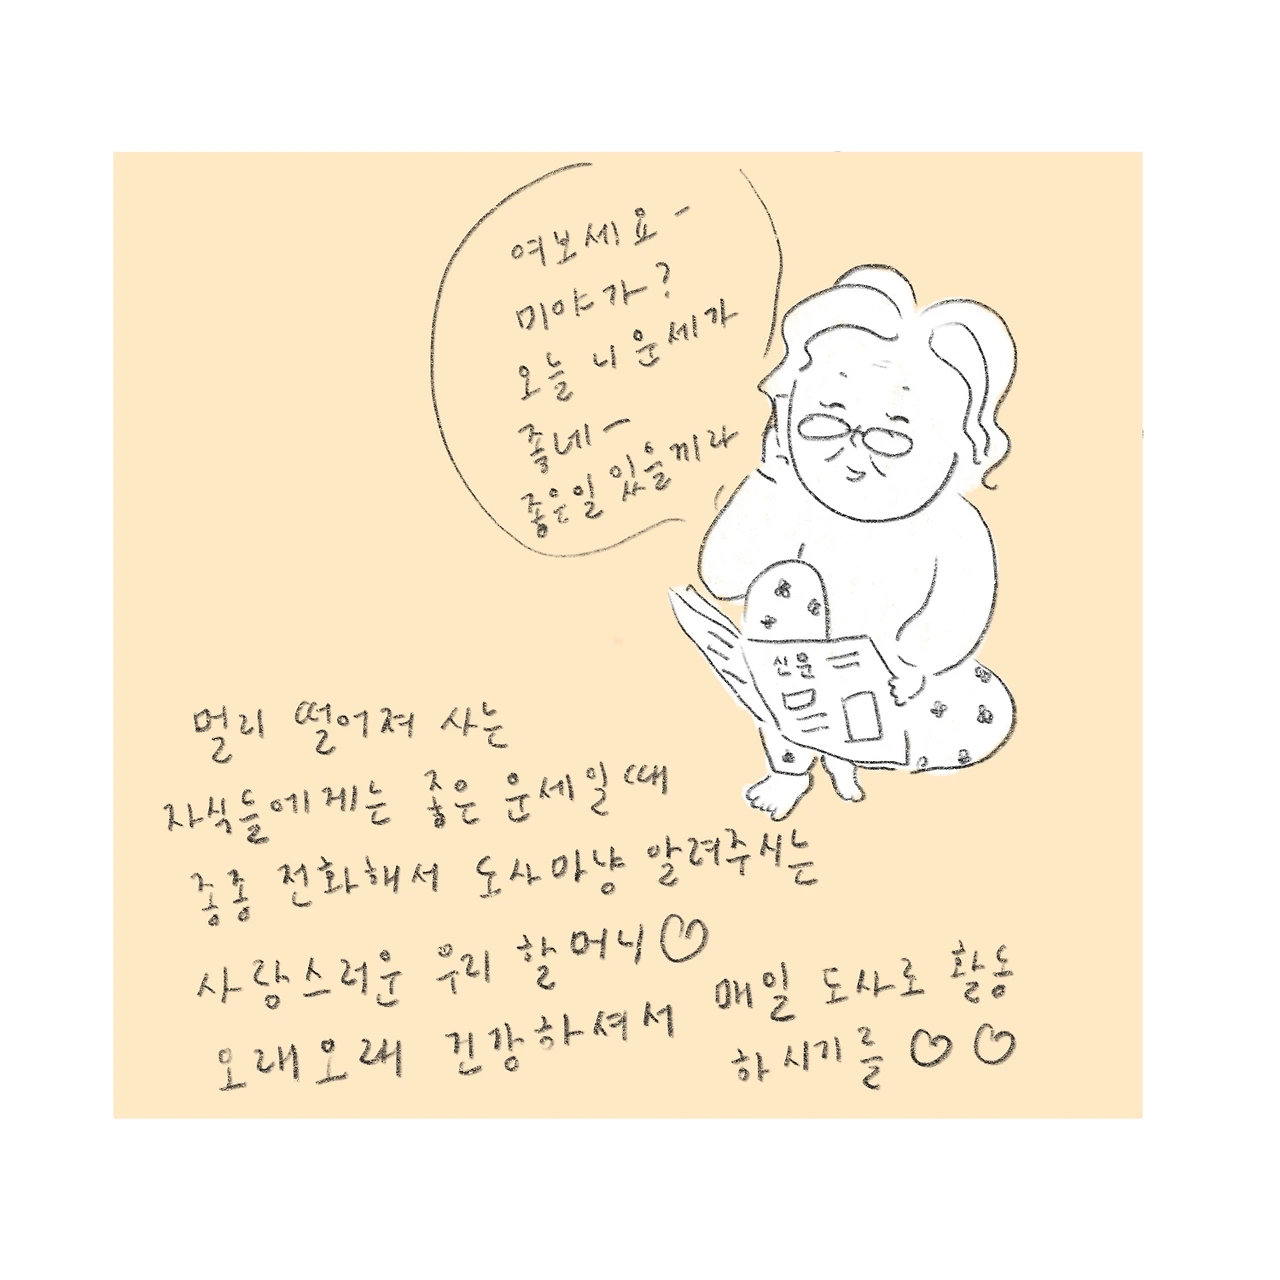 여보세요-
미야가?
오늘 니 운세가
좋네-
좋은일 있을끼라
신문
멀리 떨어져 사는
자식들에게는 좋은 운세일 때
종종 전화해서 도사마냥 알려주시는
사랑스러운 우리 할머니♡
오래오래 건강하셔서 매일 도사로 활동
하시기를 ♡♡